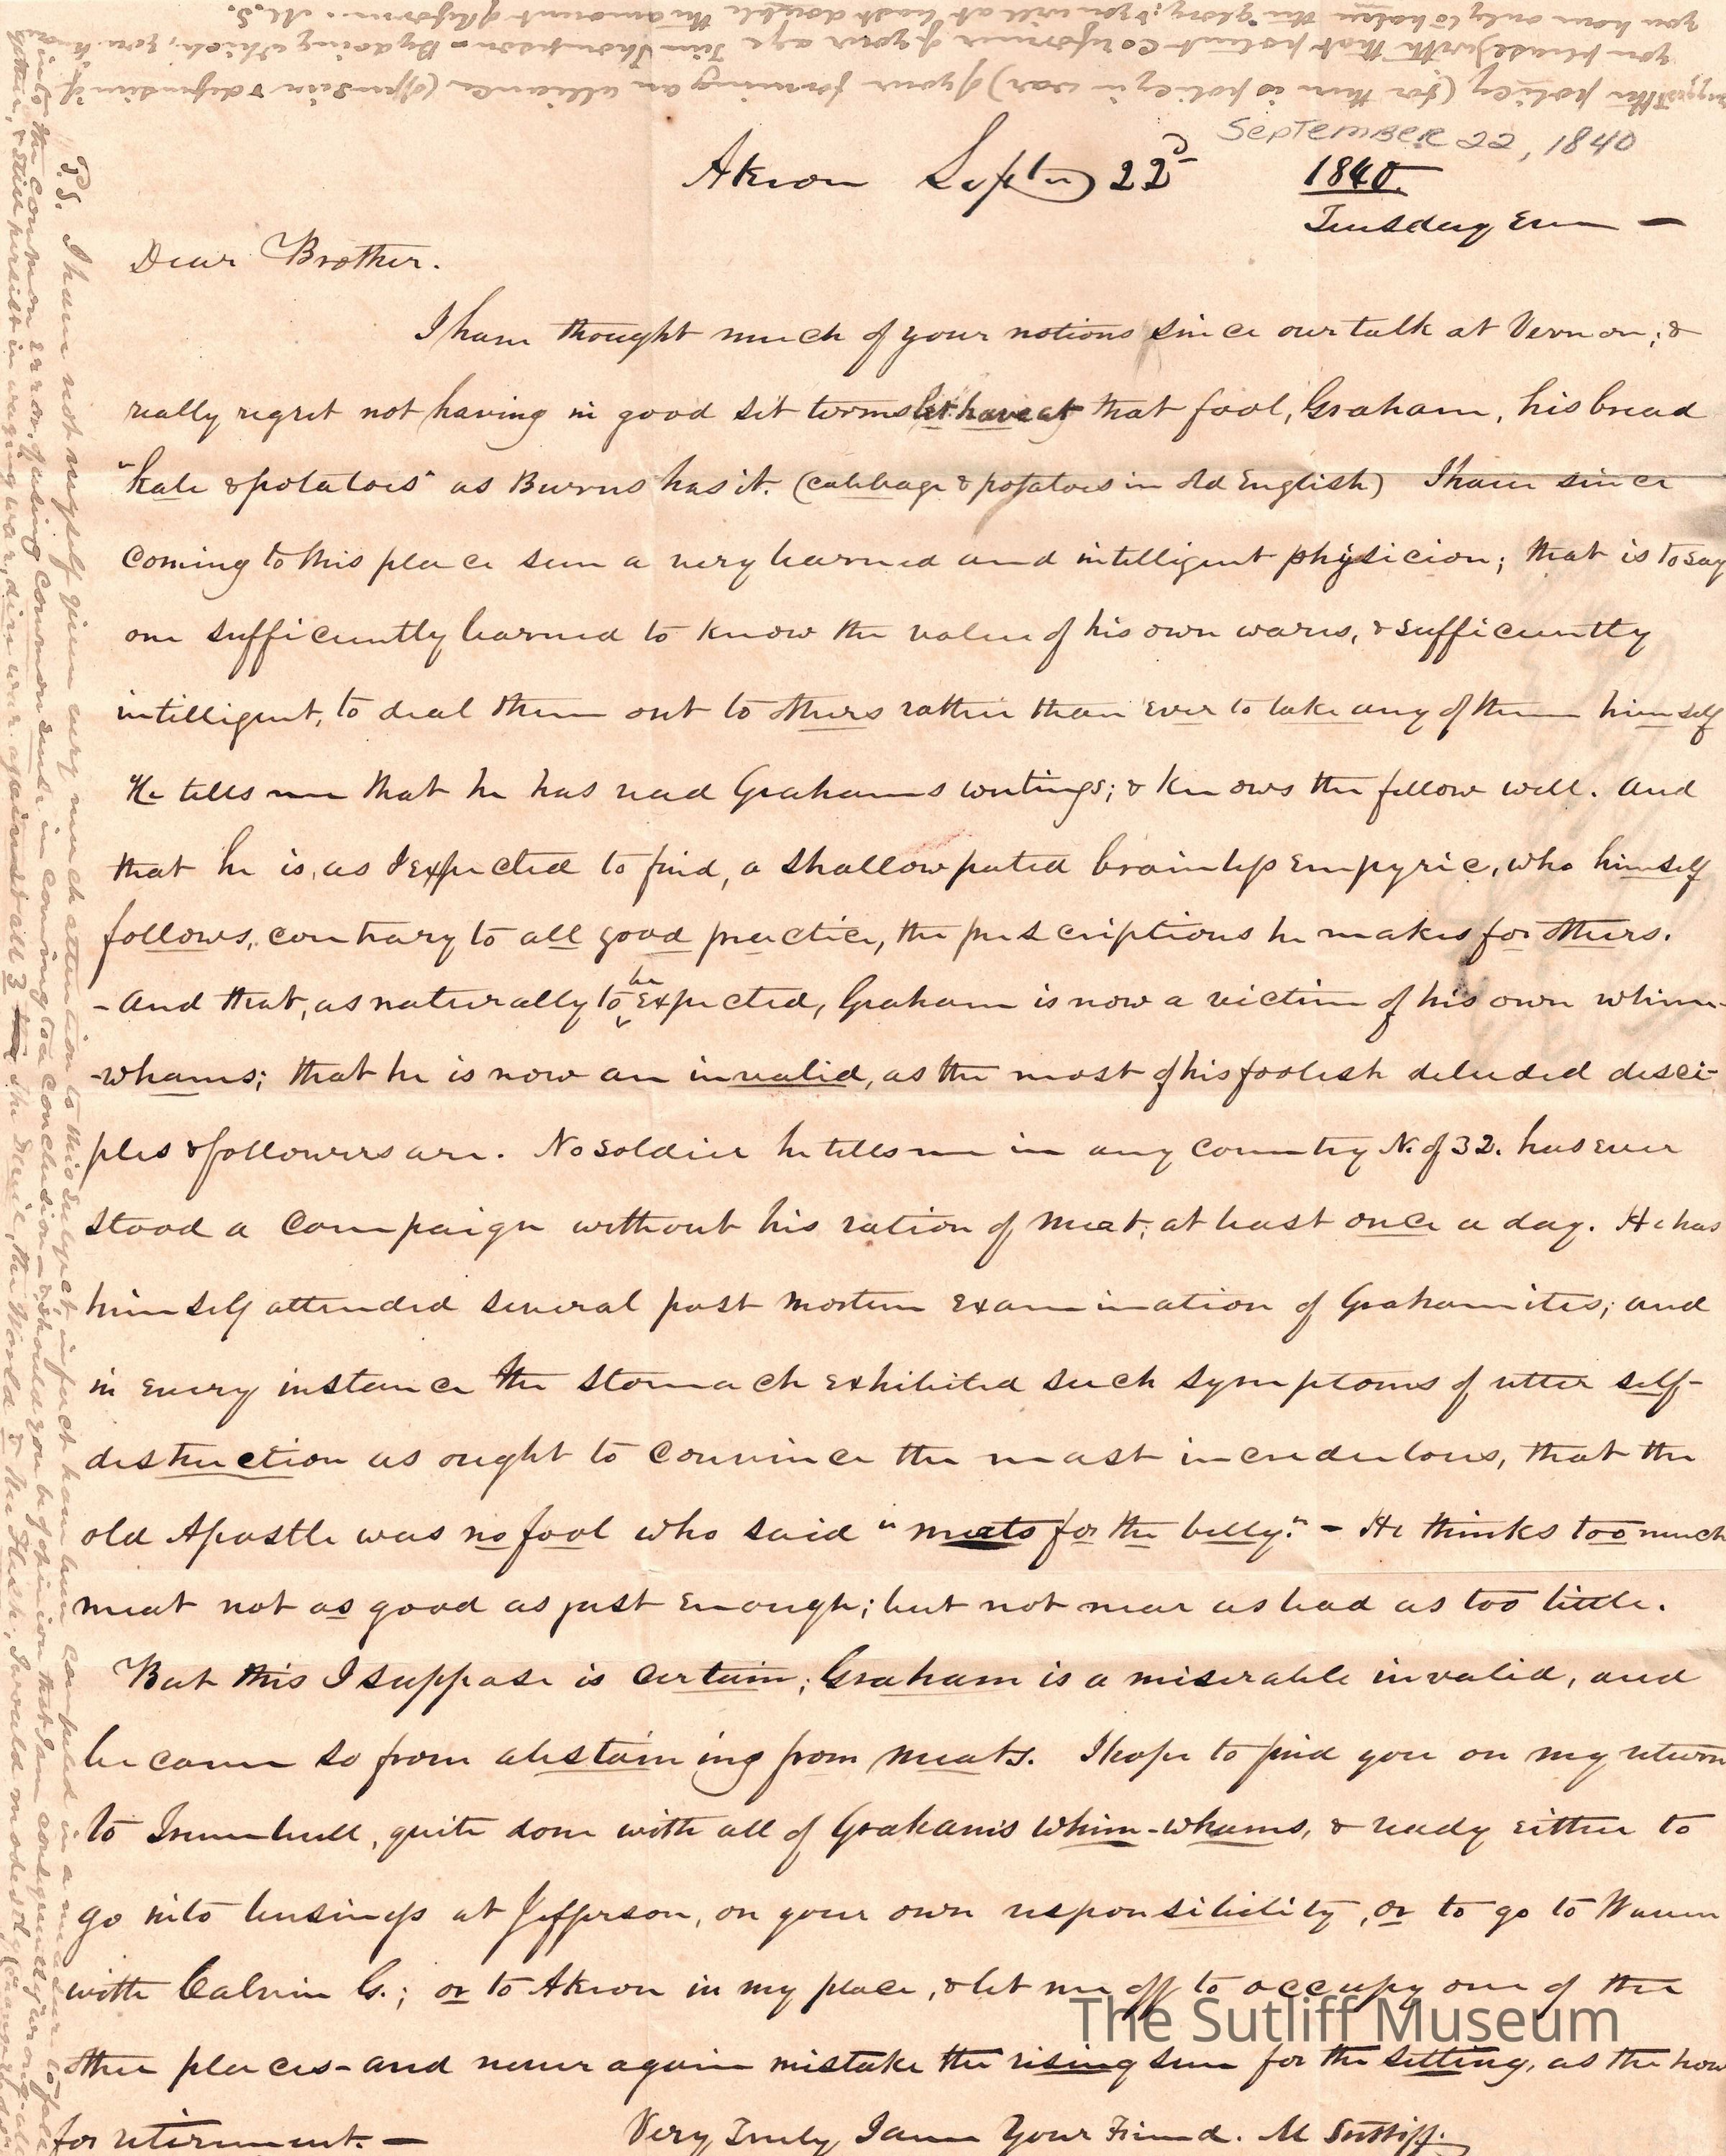 Akron Septem 22d 1840.
September 22, 1840
Tuesday Eve —
Dear Brother.
I have thought much of your notions since our talk at Vernon; &
really regret not having in good set terms let have at that fool, Graham, his bread
"kale & potatoes" as Burns has it. (cabbage & potatoes in old English) I have since
coming to this place seen a very learned and intelligent physicion; that is to say
one sufficiently learned to know the value of his own wares, & sufficiently
intelligent, to deal them out to others rather than ever to take any of them himself
He tells me that he has read Grahams writings; & knows the fellow well. And
that he is, as I expected to find, a shallow pated brainless empyric, who himself
follows, contrary to all good practice, the prescriptions he makes for others.
- And that, as naturally to be expected, Graham is now a victim of his own whim-
-whams; that he is now an invalid, as the most of his foolish deluded disci-
ples & followers are. No soldier he tells me in any country N. of 32. has ever
stood a campaign without his ration of meat; at least once a day. He has
himself attended several post mortem examination of Grahamites; and
in every instance the stomach exhibited such symptoms of utter self-
destruction as ought to convince the most incredulous, that the
old Apostle was no fool who said "meats for the belly." - He thinks too much
meat not as good as just enough; but not near as bad as too little.
But this I suppose is certain; Graham is a miserable invalid, and
became so from abstaining from meats. I hope to find you on my return
to Trumbull, quite done with all of Graham's whim-whams, & ready either to
go into business at Jefferson, on your own responsibility, or to go to Warren
with Calvin G.; or to Akron in my place, & let me off to occupy one of the
other places - and never again mistake the rising sun for the setting, as the hour
for retirement. —
Very Truly I am Your Friend. M Sutliff.
P.S. I have not myself given very much attention to this subject in fact have been compelled in a
into the common error, of using common sense in coming to a conclusion & should you be of opinion that I am consequently wrong
& still persist in waging war, dire war, against all 3 the Devil, the World & the Flesh, I would modestly
suggest the policy (for there is policy in war) of your forming an alliance (offensive & defensive if
you please) with that potent coreformer of your age Jim Thompson - By doing which, you know
you have only to halve the "glory; & you will at least double the amount of reform. M.S.
The Sutliff Museum